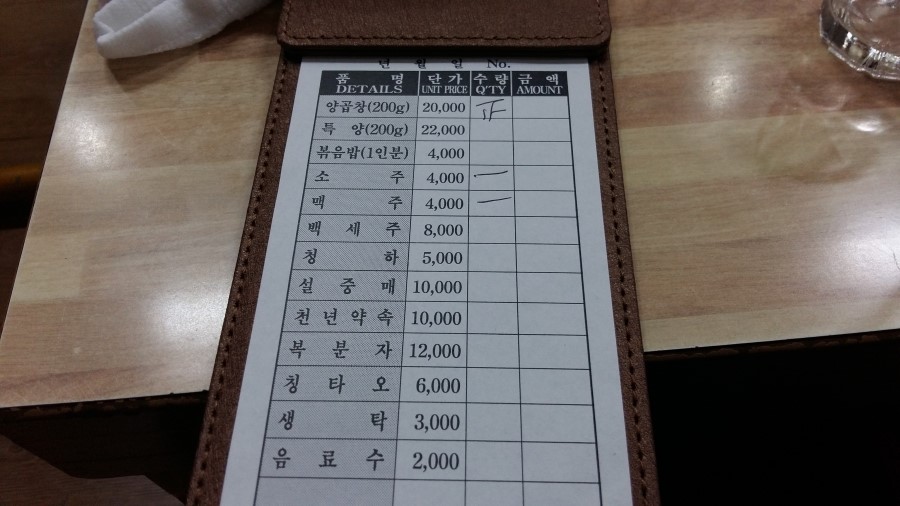 년 월 일 No.
품 명 단 가 수 량 금 액
DETAILS UNIT PRICE Q'TY AMOUNT
양곱창(200g) 20,000 正
특 양(200g) 22,000
볶음밥(1인분) 4,000
소 주 4,000 一
맥 주 4,000 一
백 세 주 8,000
청 하 5,000
설 중 매 10,000
천 년 약 속 10,000
복 분 자 12,000
칭 타 오 6,000
생 탁 3,000
음 료 수 2,000